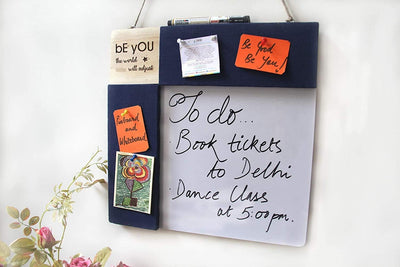 bE YOU
the world
will adjust
Be Good
Be You!
Pinboard
and
Whiteboard
To do...
. Book tickets
to Delhi
. Dance Class
at 5:00pm.